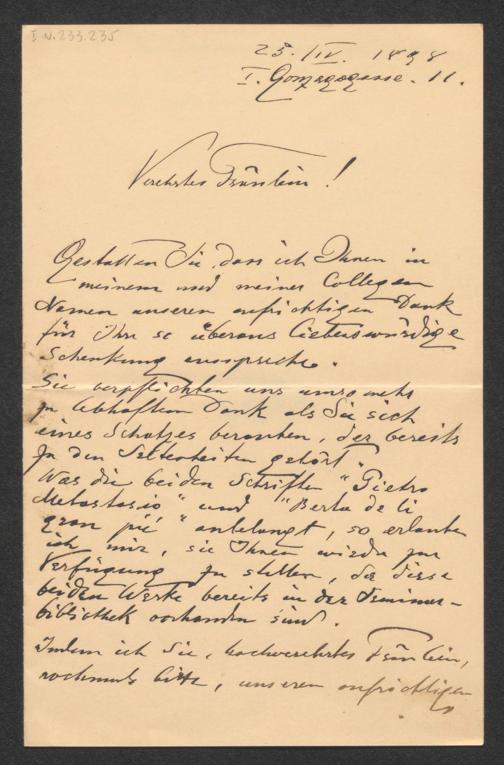 I.N. 233.235
25. IV. 1898
I. Gonzagagasse. 11.
Verehrtes Fräulein!
Gestatten Sie, dass ich Ihnen in
meinem und meiner Collegen
Namen unseren aufrichtigen Dank
für Ihre so überaus liebenswürdige
Schenkung ausspreche.
Sie verpflichten uns umsomehr
zu lebhaftem Dank als Sie sich
eines Schatzes berauben, der bereits
zu den Seltenheiten gehört.
Was die beiden Schriften "Pietro
Metastasio" und "Berta de li
gran pié" anbelangt, so erlaube
ich mir, sie Ihnen wieder zur
Verfügung zu stellen, da diese
beiden Werke bereits in der Seminar-
bibliothek vorhanden sind.
Indem ich Sie, hochverehrtes Fräulein,
nochmals bitte, unseren aufrichtigen